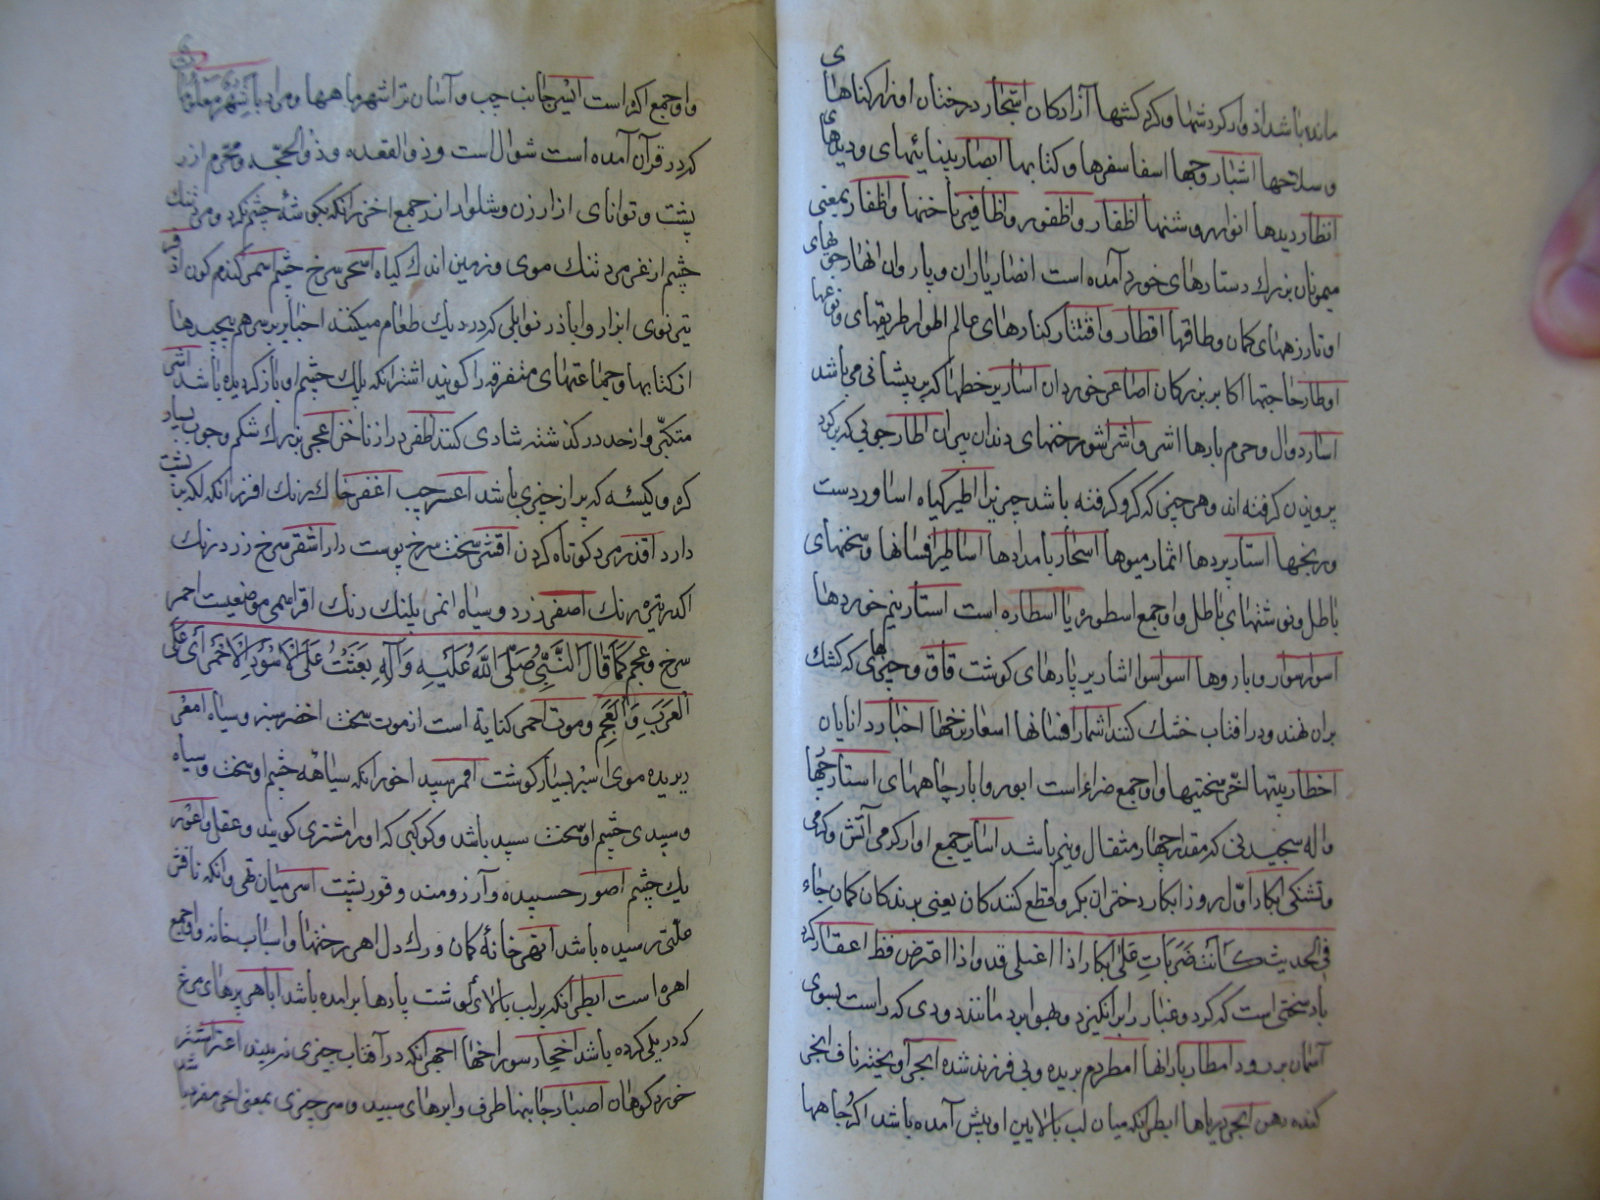 مانده باشد از دوار کردشها و کرد کشتها آزادکان اشجار درختان اوزار کناهها
و سلاحها اشبار وجبها اسفار سفرها و کتابها ابصار بینائیهای و دیدهای
انظار دیدها انوار روشنها اظفار و اظفور و اظافیر ناخنها و اظفار بمعنی
میمونان بزرک دستارهای خورد آمده است انصار یاران و یاروان انهار جویهای
اوتار زههای کمان و طاقها اقطار و اقتار کنارهای عالم اطوار طریقهای و نوعها
اوطار حاجتها اکابر بزرکان اصاغر خوردان اساریر خطها که بر پیشانی می باشد
اسار دوال و حرم بارها اشر و اشر اشور رختهای دندان پیران اطار چوبی که برکرد
پرویزن کرفته اند و هر چیزی که کرو کرفته باشد چیزیرا اطیر کیاه اساور دست
ورنجها استار پردها اثمار میوها اسحار بامدادها اساطیر افسانها و سخنهای
باطل و نوشتهای باطل و او جمع اسطوره یا اسطاره است استار نیم خوردها
اسوار سوار و باروها اسوار سوار اشاریر پارهای کوشت قاق و چیزهای که کشک
بران نهند و در افتاب خشک کنند اشمار افسانها اسعار نرخها اخبار دانایان
اخطار پیتها اخر سختیها و او جمع ضراء است ابور و ابار چاههای استار چهها
واله سجیدنی که مقدار چهار مثقال و نیم باشد اساتیر جمع اوار کرمی آتش و کرمی
و تشنکی ابکار اول روز ابکار دختران بکر و قطع کنندکان یعنی برندکان کمان جاء
فی الحدیث کانت ضربات علی ابکار اذا اعتلی قد و اذا اعترض قط اعصار کرد
باد سختی است که کرد و غبار را برانکیزد و بهوا برد مانند دودی که راست بسوی
آسمان برود امطار بارانها امطر دم بریده و بی فرزند شده ابجر آویخته ناف ابخر
کنده دهن ابحر دریاها ابظر انکه میان لب بالایین او پیش آمده باشد اکر جاهها
و او جمع اکره است ایسر جانب چپ و آسان تر اشهر ماهها و مراد باشهر معلومات
که در قرآن آمده است شوال است و ذو القعده و ذو الحجه و محرم ازر
پشت و توانای ازار زن و شلوار ازر جمع اخزر انکه بکوشه چشم نکرد و مرد تنک
چشم ازغر مرد تنک موی و زمین اندک کیاه اسجر سرخ چشم اسمر کندم کون اذفر
تیز بوی ابزار و اباذر توابلی که در دیک طعام میکنند اضابیر بر سر هم پیچیدها
از کتابها و جماعتهای متفرقه را کویند اشتر انکه پلک چشم او باز کردیده باشد اشر
متکبر و از حد در کذشته شادی کننده اظفر دراز ناخن اعجر بزرک شکم و چوب بسیار
کره و کیسه که پر از چیزی باشد اعسر چپ اغفر خاک رنک افزر انکه لکه بر پشت
دارد اقدر مرد کوتاه کردن اقشر سخت سرخ پوست دار اشقر سرخ زرد رنک
اکدر تیره رنک اصفر زرد و سیاه انمر پلنک رنک اقر اسمی موضعیست احمر
سرخ و عجم کما قال النبی صلی الله علیه و آله بعثت علی الاسود و الاحمر ای علی
العرب و العجم و موت احمر کنایه است از موت سخت اخضر سبز و سیاه امغر
بریده موی اسبر بسیار کوشت اقمر سپید احور انکه سیاهه چشم او سخت و سیاه
و سپیدی چشم او سخت سپید باشد و کوکبی که او را مشتری کویند و عقل و اعور
یک چشم اصور حسپیده و آرزومند و قور پشت اسر میان تهی و انکه نافش
علتی رسیده باشد ابهر خانه کمان و رک دل اهر رختها و اسباب خانه و او جمع
اهره است ابظر انکه بر لب بالای کوشت پارها برامده باشد اباهر پرهای مرغ
که در پلی کرده باشد اجحار سوراخها اجهر انکه در آفتاب چیزی نه بیند اعتر اشتر
خورد کوهان اصبار جانبها طرف و ابرهای سپید و سر چیزی بمعنی اخر مفر باشد